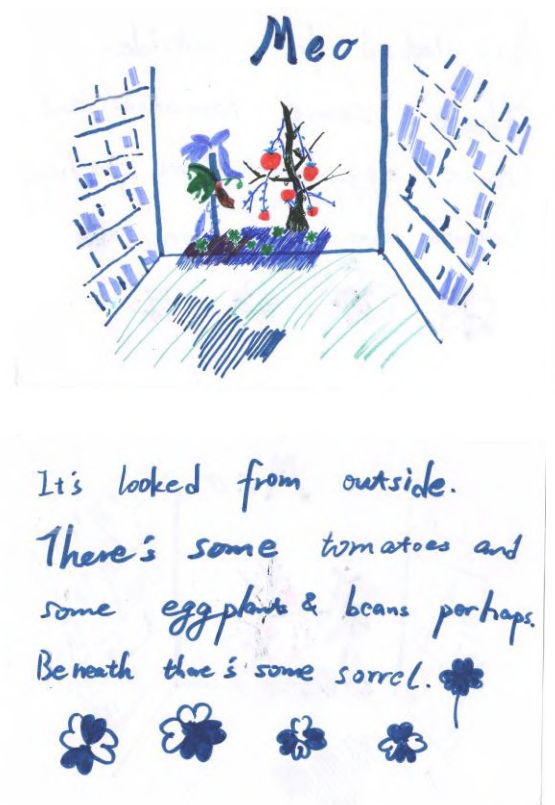 Meo
It's looked from outside.
There's some tomatoes and
some eggplants & beans perhaps.
Beneath there's some sorrel.